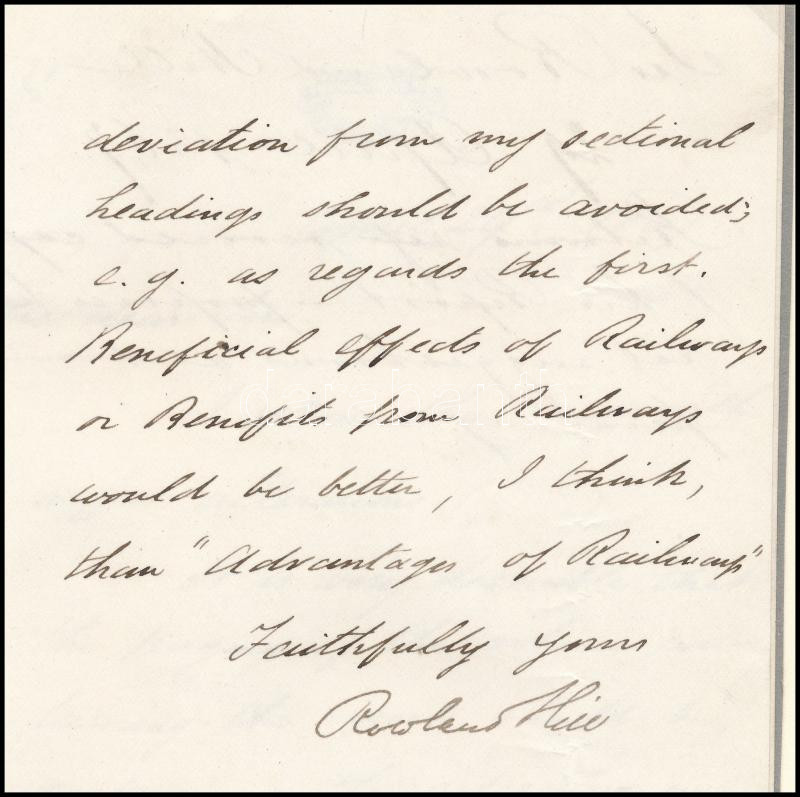 deviation from my sectional
headings should be avoided;
e.g. as regards the first.
Beneficial effects of Railways
or Benefits from Railways
would be better, I think,
than "Advantages of Railways"
Faithfully yours
Rowland Hill